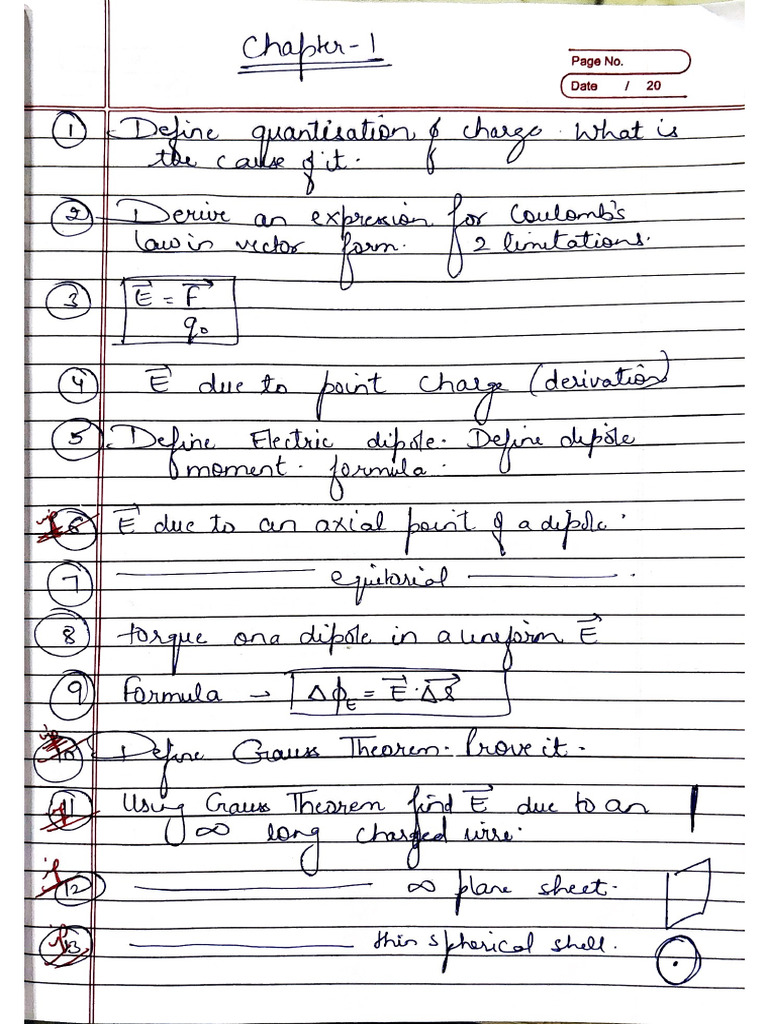 Chapter-1
Page No.
Date / 20
1 Define quantisation of charge. What is
the cause of it.
2 Derive an expression for Coulomb's
law in vector form. 2 limitations.
3 E⃗ = F⃗
q₀
4 E⃗ due to point charge (derivation)
5 Define Electric dipole. Define dipole
moment. formula.
6 E⃗ due to an axial point of a dipole.
7 ——— equitorial ———.
8 torque on a dipole in a uneform E⃗
9 formula → Δϕ_E = E⃗·ΔS⃗
10 Define Gauss Theorem. Prove it.
11 Using Gauss Theorem find E⃗ due to an
∞ long charged wire.
12 ——— ∞ plane sheet.
13 ——— thin spherical shell.